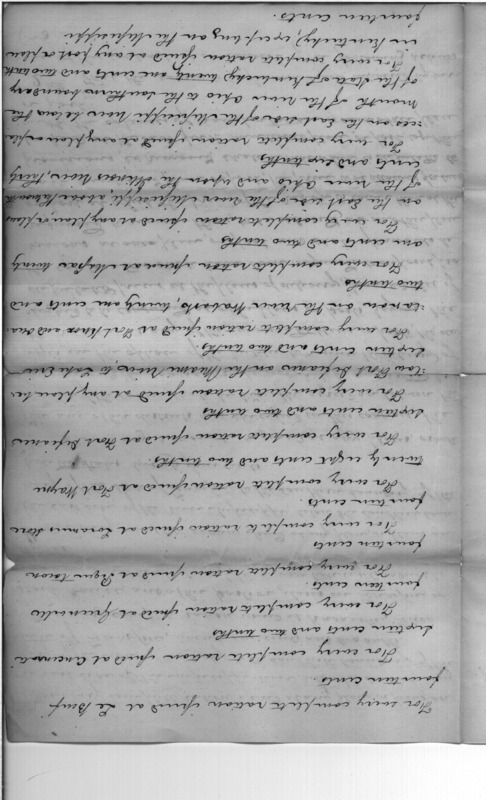 For every complete ration issued at Le Beuf
fourteen cents.
For every complete ration issued at Cincinnati
sixteen cents and two tenths
For every complete ration issued at Greenville
fourteen cents.
For every complete ration issued at Piqua Town
fourteen cents
For every complete ration issued at Loramies Store
fourteen cents.
For every complete ration issued at Fort Wayne
twenty eight cents and two tenths.
For every complete ration issued at Fort Defiance
sixteen cents and two tenths
For every complete ration issued at any place be-
low Fort Defiance on the Miami River to Lake Erie
sixteen cents and two tenths.
For every complete ration issued at Fort Knox and Oua-
tanon on the river Wabash, twenty one cents and
two tenths
For every complete ration issued at Massac twenty
one cents and two tenths
For every complete ration issued at any place, or places
on the East side of the river Mississippi, above the mouth
of the river Ohio and upon the Illinois River, thirty
cents and six tenths
For every complete ration issued at any place or pla-
ces on the East side of the Mississippi River below the
mouth of the river Ohio to the Southern boundary
of the State of Kentucky twenty one cents and two tenths
For every complete ration issued at any post or place
in Kentucky, excepting on the Mississippi
fourteen cents.